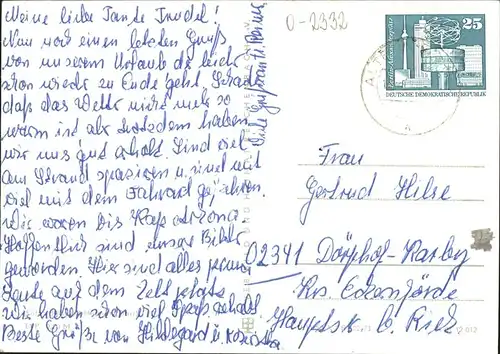 Meine liebe Tante Trudel!
Nun noch einen letzten Gruß
von unserem Urlaub der leider
schon wieder zu Ende geht. Schade
daß das Wetter nicht mehr so
warm ist aber trotzdem haben
wir uns gut erholt. Sind viel
am Strand spazieren u. sind mit
viel mit dem Fahrrad gefahren.
Wir waren bis Kap Arkona
Hoffentlich sind unsere Bilder
geworden. Hier sind alles prima
Leute auf dem Zeltplatz
wir haben schon viel Spaß gehabt
Beste Grüße von Hildegard u.
Viele Grüße
0-2332
25
DEUTSCHE DEMOKRATISCHE REPUBLIK
Frau
Gertrud Hilse
02341 Dörphof-Karby
Krs. Eckernförde
Hauptstr. b.